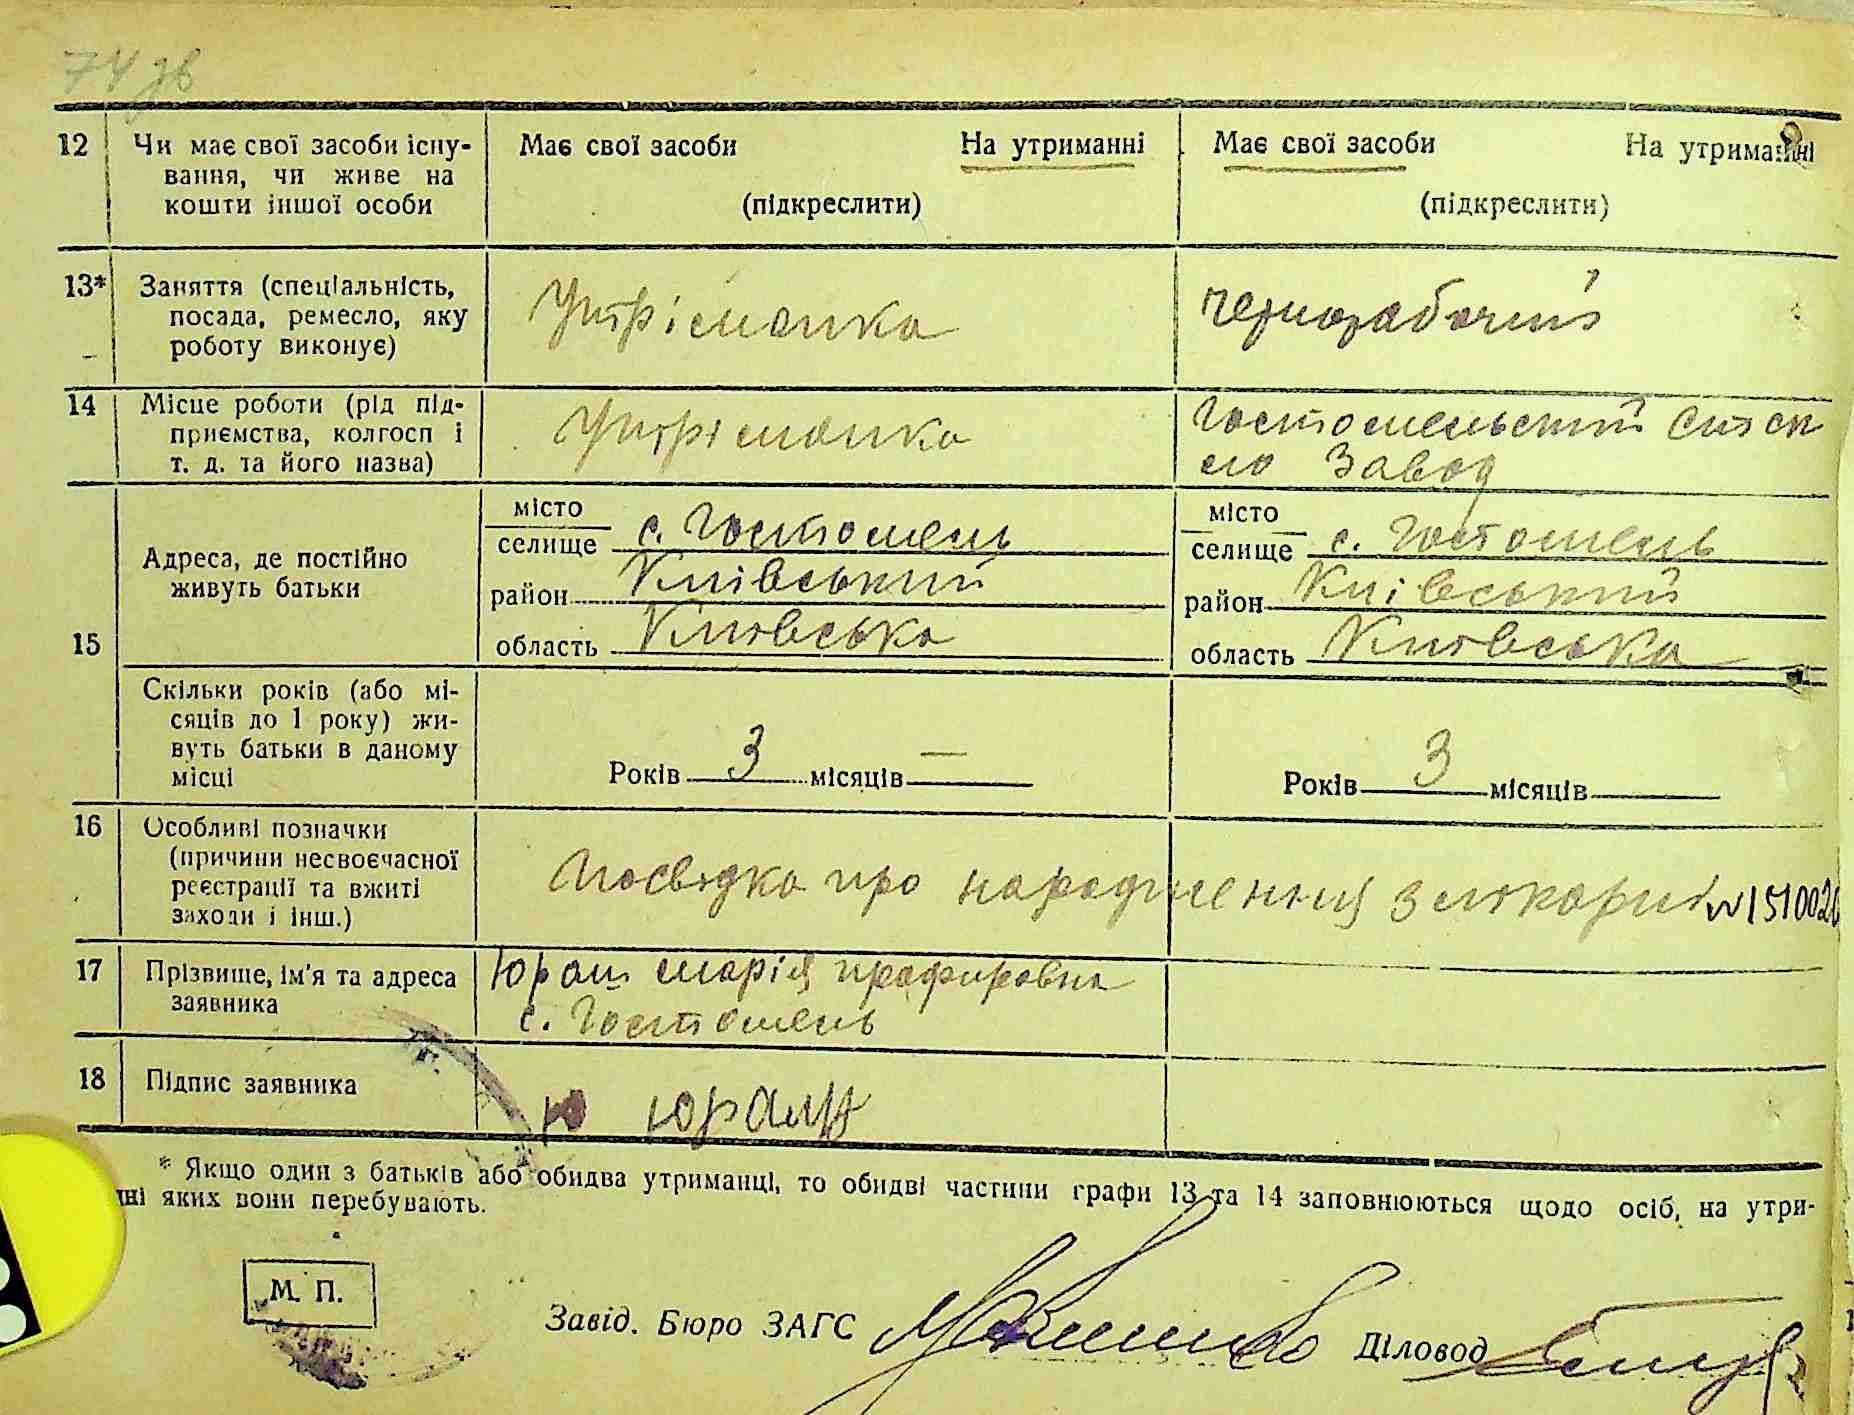 74 зв
12 Чи має свої засоби існу-
вання, чи живе на
кошти іншої особи
Має свої засоби На утриманні
(підкреслити)
Має свої засоби На утриманні
(підкреслити)
13* Заняття (спеціальність,
посада, ремесло, яку
роботу виконує)
Утріманка
чернорабочий
14 Місце роботи (рід під-
приємства, колгосп і
т. д. та його назва)
Утріманка
Гостомельський
Завод
15 Адреса, де постійно
живуть батьки
місто
селище с. Гостомель
район Київський
область Київська
місто
селище с. Гостомель
район Київський
область Київська
Скільки років (або мі-
сяців до 1 року) жи-
вуть батьки в даному
місці
Років 3 місяців —
Років 3 місяців
16 Особливі позначки
(причини несвоєчасної
реєстрації та вжиті
заходи і інш.)
Посвідка про народження з лікарні № 151002
17 Прізвище, ім'я та адреса
заявника
Юраш марія
с. Гостомель
18 Підпис заявника
Ю Юраш
* Якщо один з батьків або обидва утриманці, то обидві частини графи 13 та 14 заповнюються щодо осіб, на утри-
ні яких вони перебувають.
М. П.
Завід. Бюро ЗАГС
Діловод